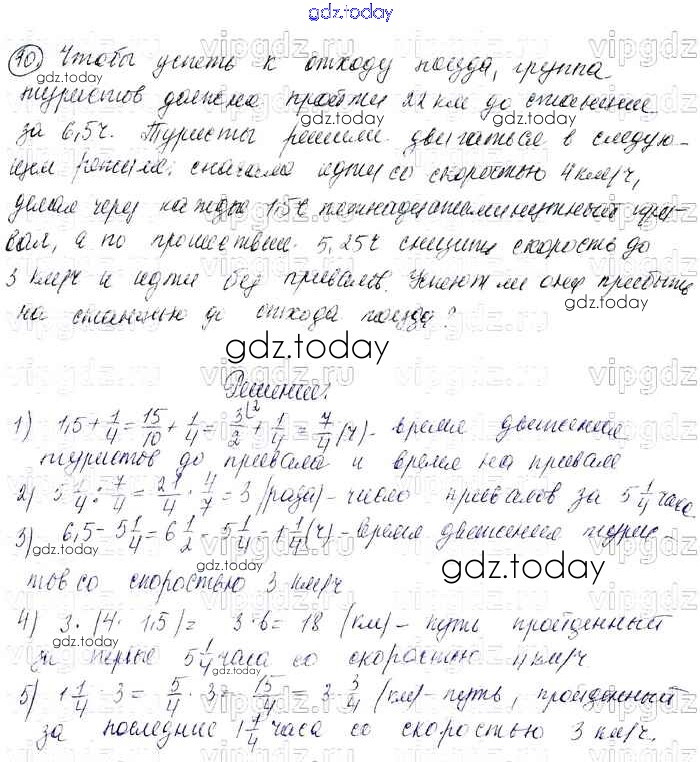 gdz.today
10) Чтобы успеть к отходу поезда, группа
туристов должна пройти 22 км до станции
за 6,5ч. Туристы решили двигаться в следую-
щем режиме: сначала идти со скоростью 4 км/ч,
делая через каждые 1,5ч пятнадцатиминутный при-
вал, а по прошествии 5,25ч снизить скорость до
3 км/ч и идти без привалов. Успеют ли они прибыть
на станцию до отхода поезда?
gdz.today
Решение:
1) 1,5 + 1/4 = 15/10 + 1/4 = 3/2 + 1/4 = 7/4 (ч) - время движения
туристов до привала и время на привале
2) 5 1/4 : 7/4 = 21/4 · 4/7 = 3 (раза) - число привалов за 5 1/4 часа
3) 6,5 - 5 1/4 = 6 1/2 - 5 1/4 = 1 1/4 (ч) - время движения турис-
тов со скоростью 3 км/ч
gdz.today
4) 3 · (4 · 1,5) = 3·6 = 18 (км) - путь пройденный
за первые 5 1/4 часа со скоростью 4 км/ч
5) 1 1/4 · 3 = 5/4 · 3 = 15/4 = 3 3/4 (км) - путь, пройденный
за последние 1 1/4 часа со скоростью 3 км/ч.